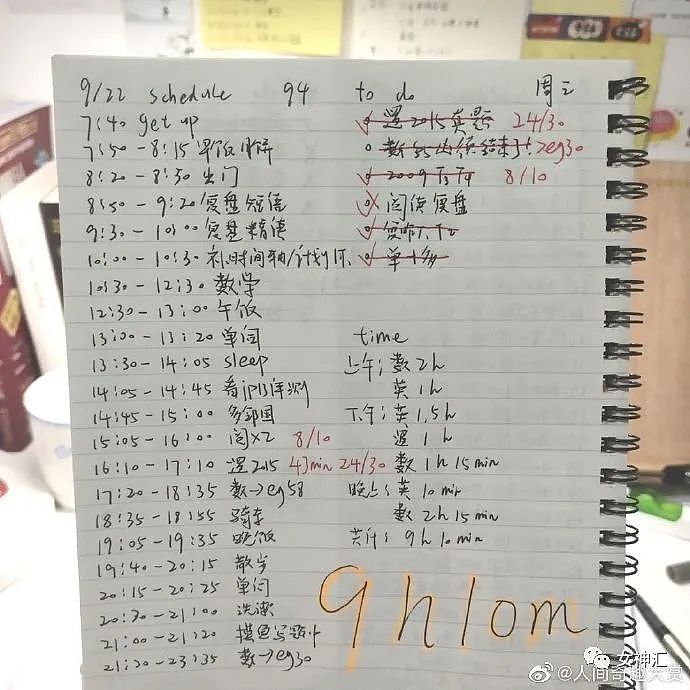 9/22 schedule 94 to do 周三
7:40 get up
7:50-8:15 早饭
8:20-8:30 出门
8:50-9:20 复盘短语
9:30-10:00 复盘精读
10:00-10:30 补时间轴/计划
10:30-12:30 数学
12:30-13:00 午饭
13:00-13:20 单词
13:30-14:05 sleep
14:05-14:45 看ip13评测
14:45-15:00 多邻国
15:05-16:00 阅X2 8/10
16:10-17:10 逻2015 43min 24/30
17:20-18:35 数→eg58
18:35-18:55 骑车
19:05-19:35 晚饭
19:40-20:15 散步
20:15-20:25 单词
20:30-21:00 洗漱
21:00-21:20 摸鱼
21:20-23:35 数→eg30
逻2015真题 24/30
eg30
2009 T3T4 8/10
阅读复盘
time
上午:数2h
英1h
下午:英1.5h
逻1h
数1h15min
晚上:英10min
数2h15min
共计:9h10min
9h10m
女神汇
@人间奇趣大赏